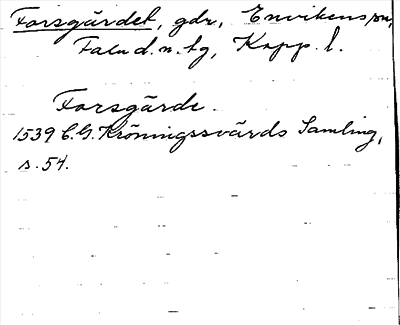 Forsgärdet, gdr, Envikens sn,
Falu d.n. tg, Kopp. l.
Forsgärde.
1539 C.G. Kröningssvärds Samling,
s. 54.